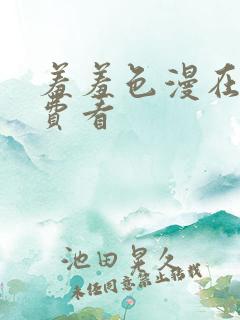 羞羞色漫在
費看
池田晃久
未经同意禁止转载